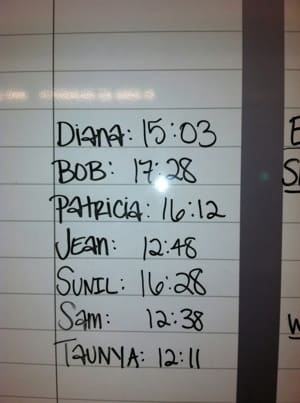 Diana: 15:03
BOB: 17:28
PatRicia: 16:12
Jean: 12:48
SUNIL: 16:28
Sam: 12:38
TAUNYA: 12:11